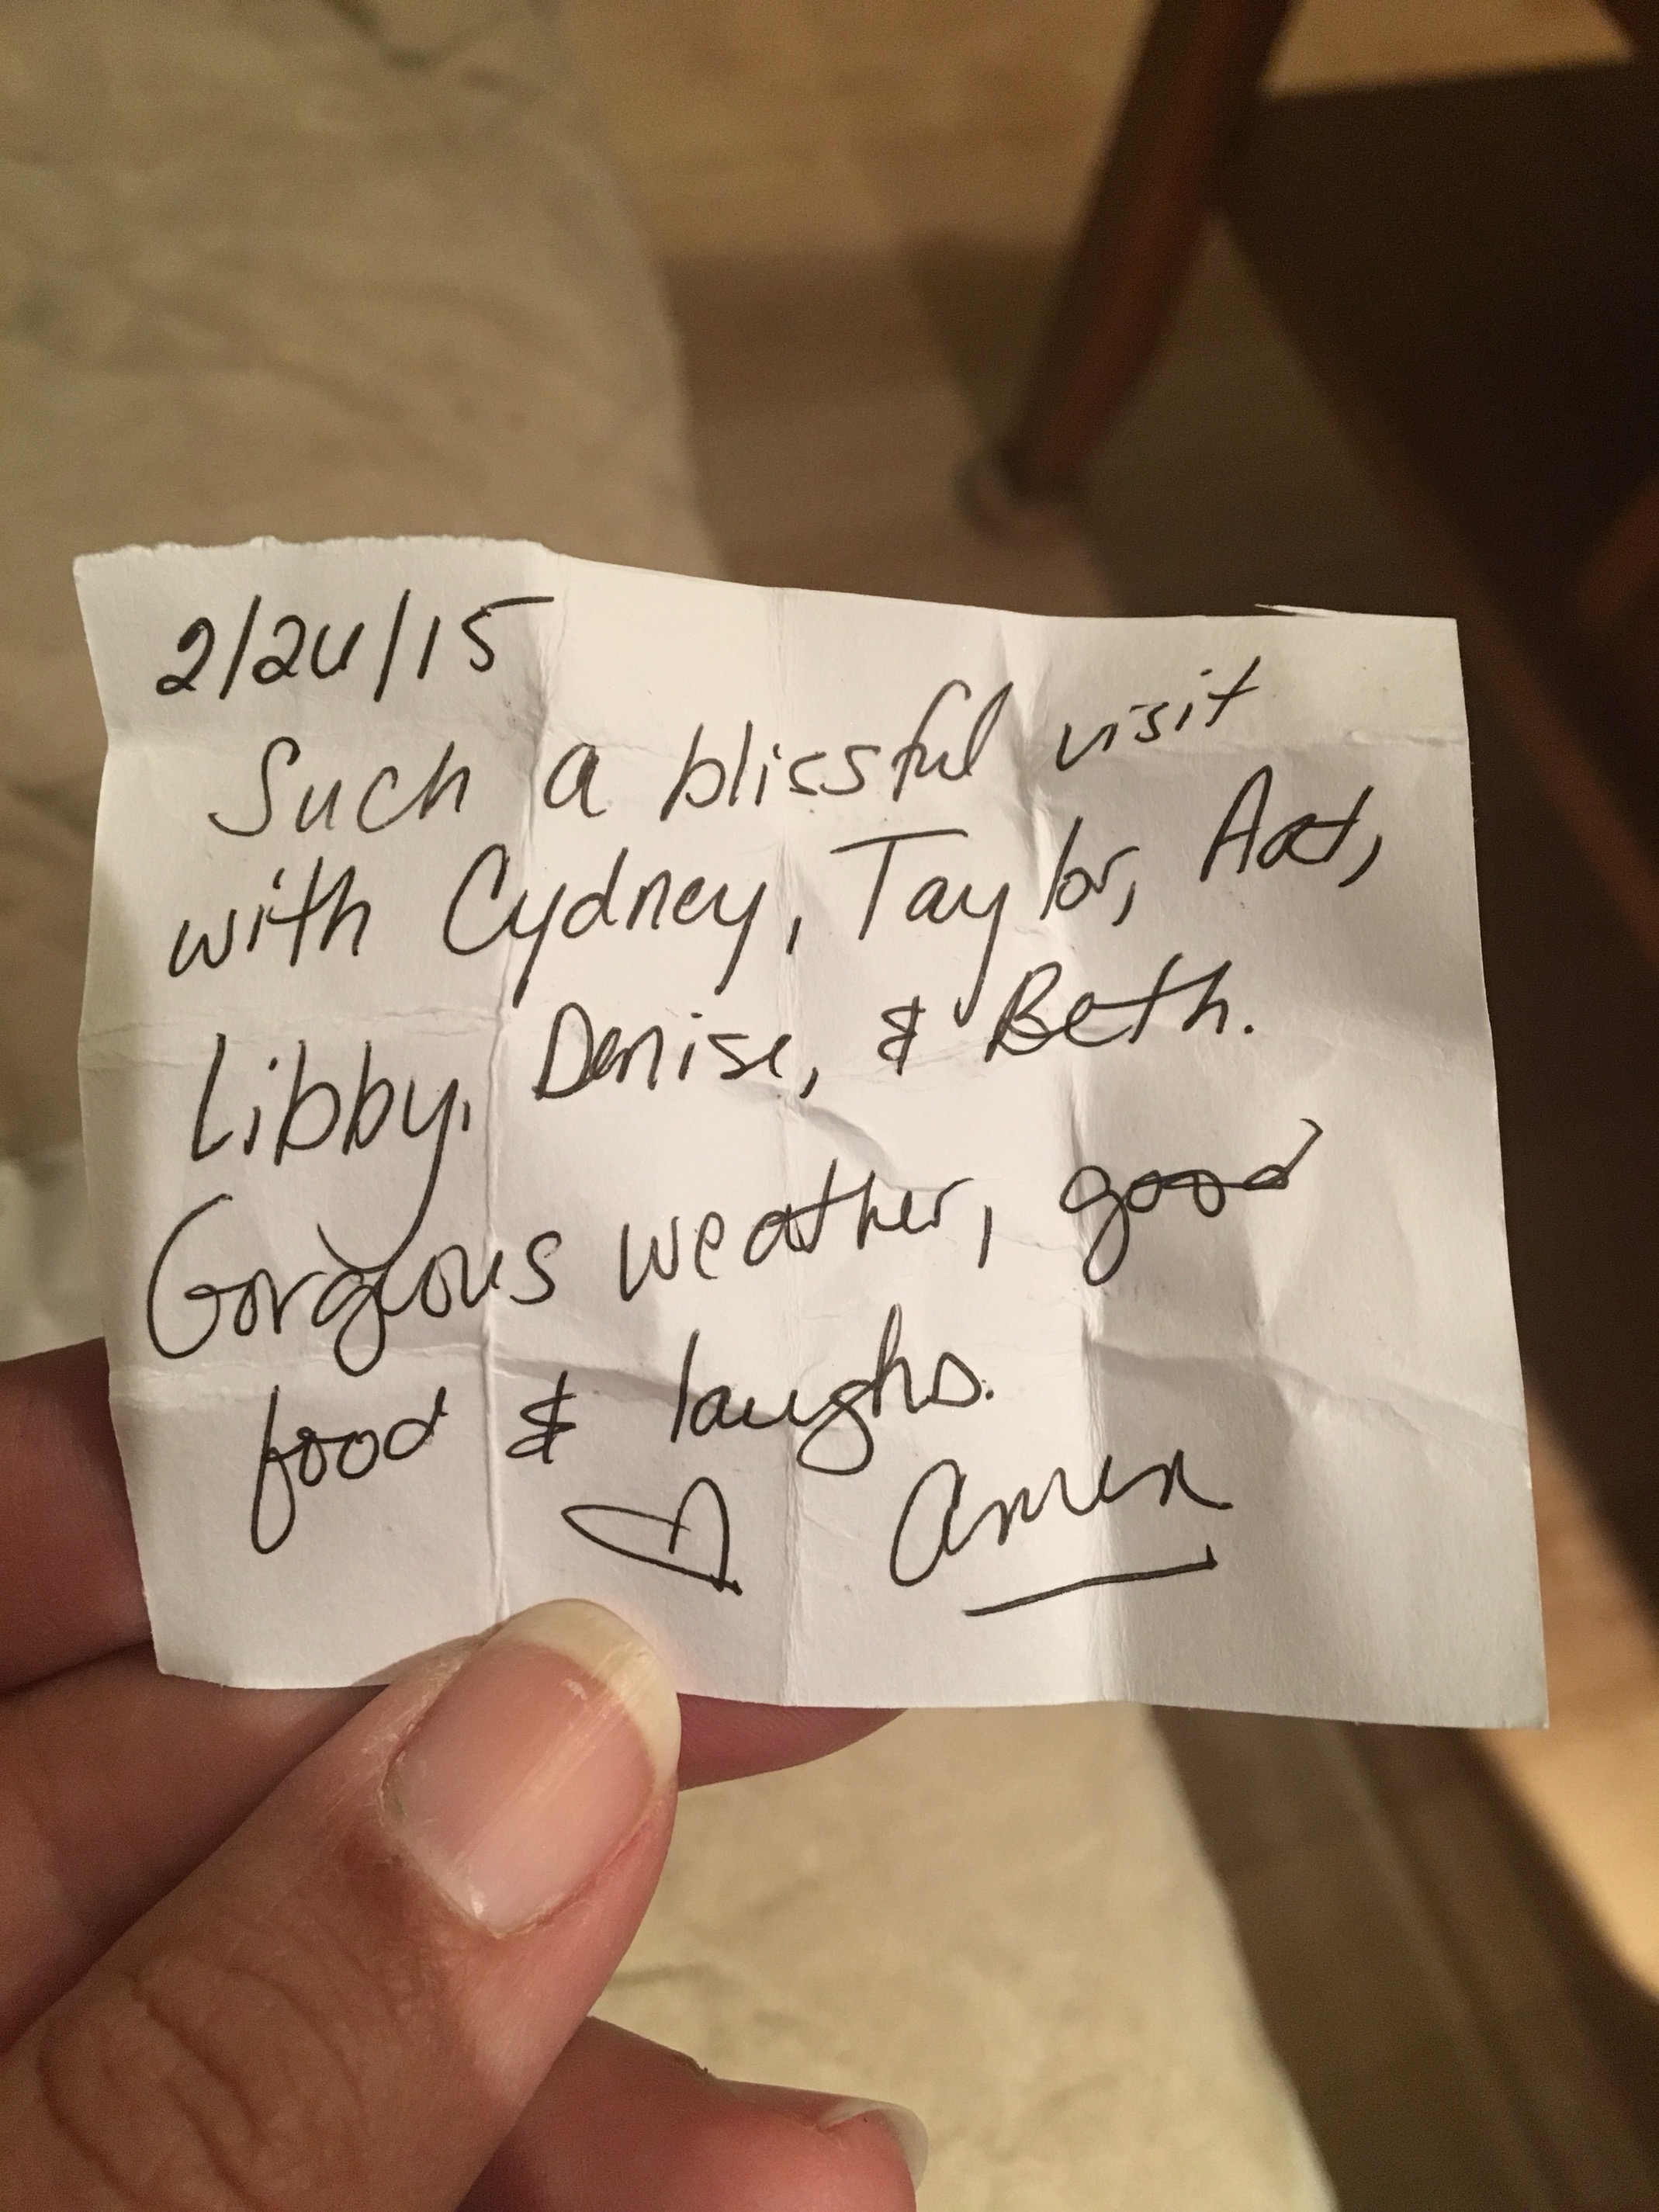 2/24/15
Such a blissful visit
with Cydney, Taylor,
Libby, Denise, & Beth.
Gorgeous weather, good
food & laughs.
♡ Amen